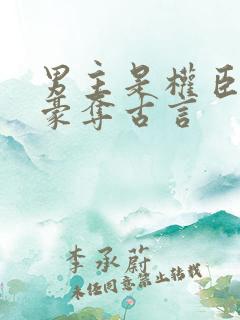 男主是權臣
豪奪古言
李承蔚
未经同意禁止转载